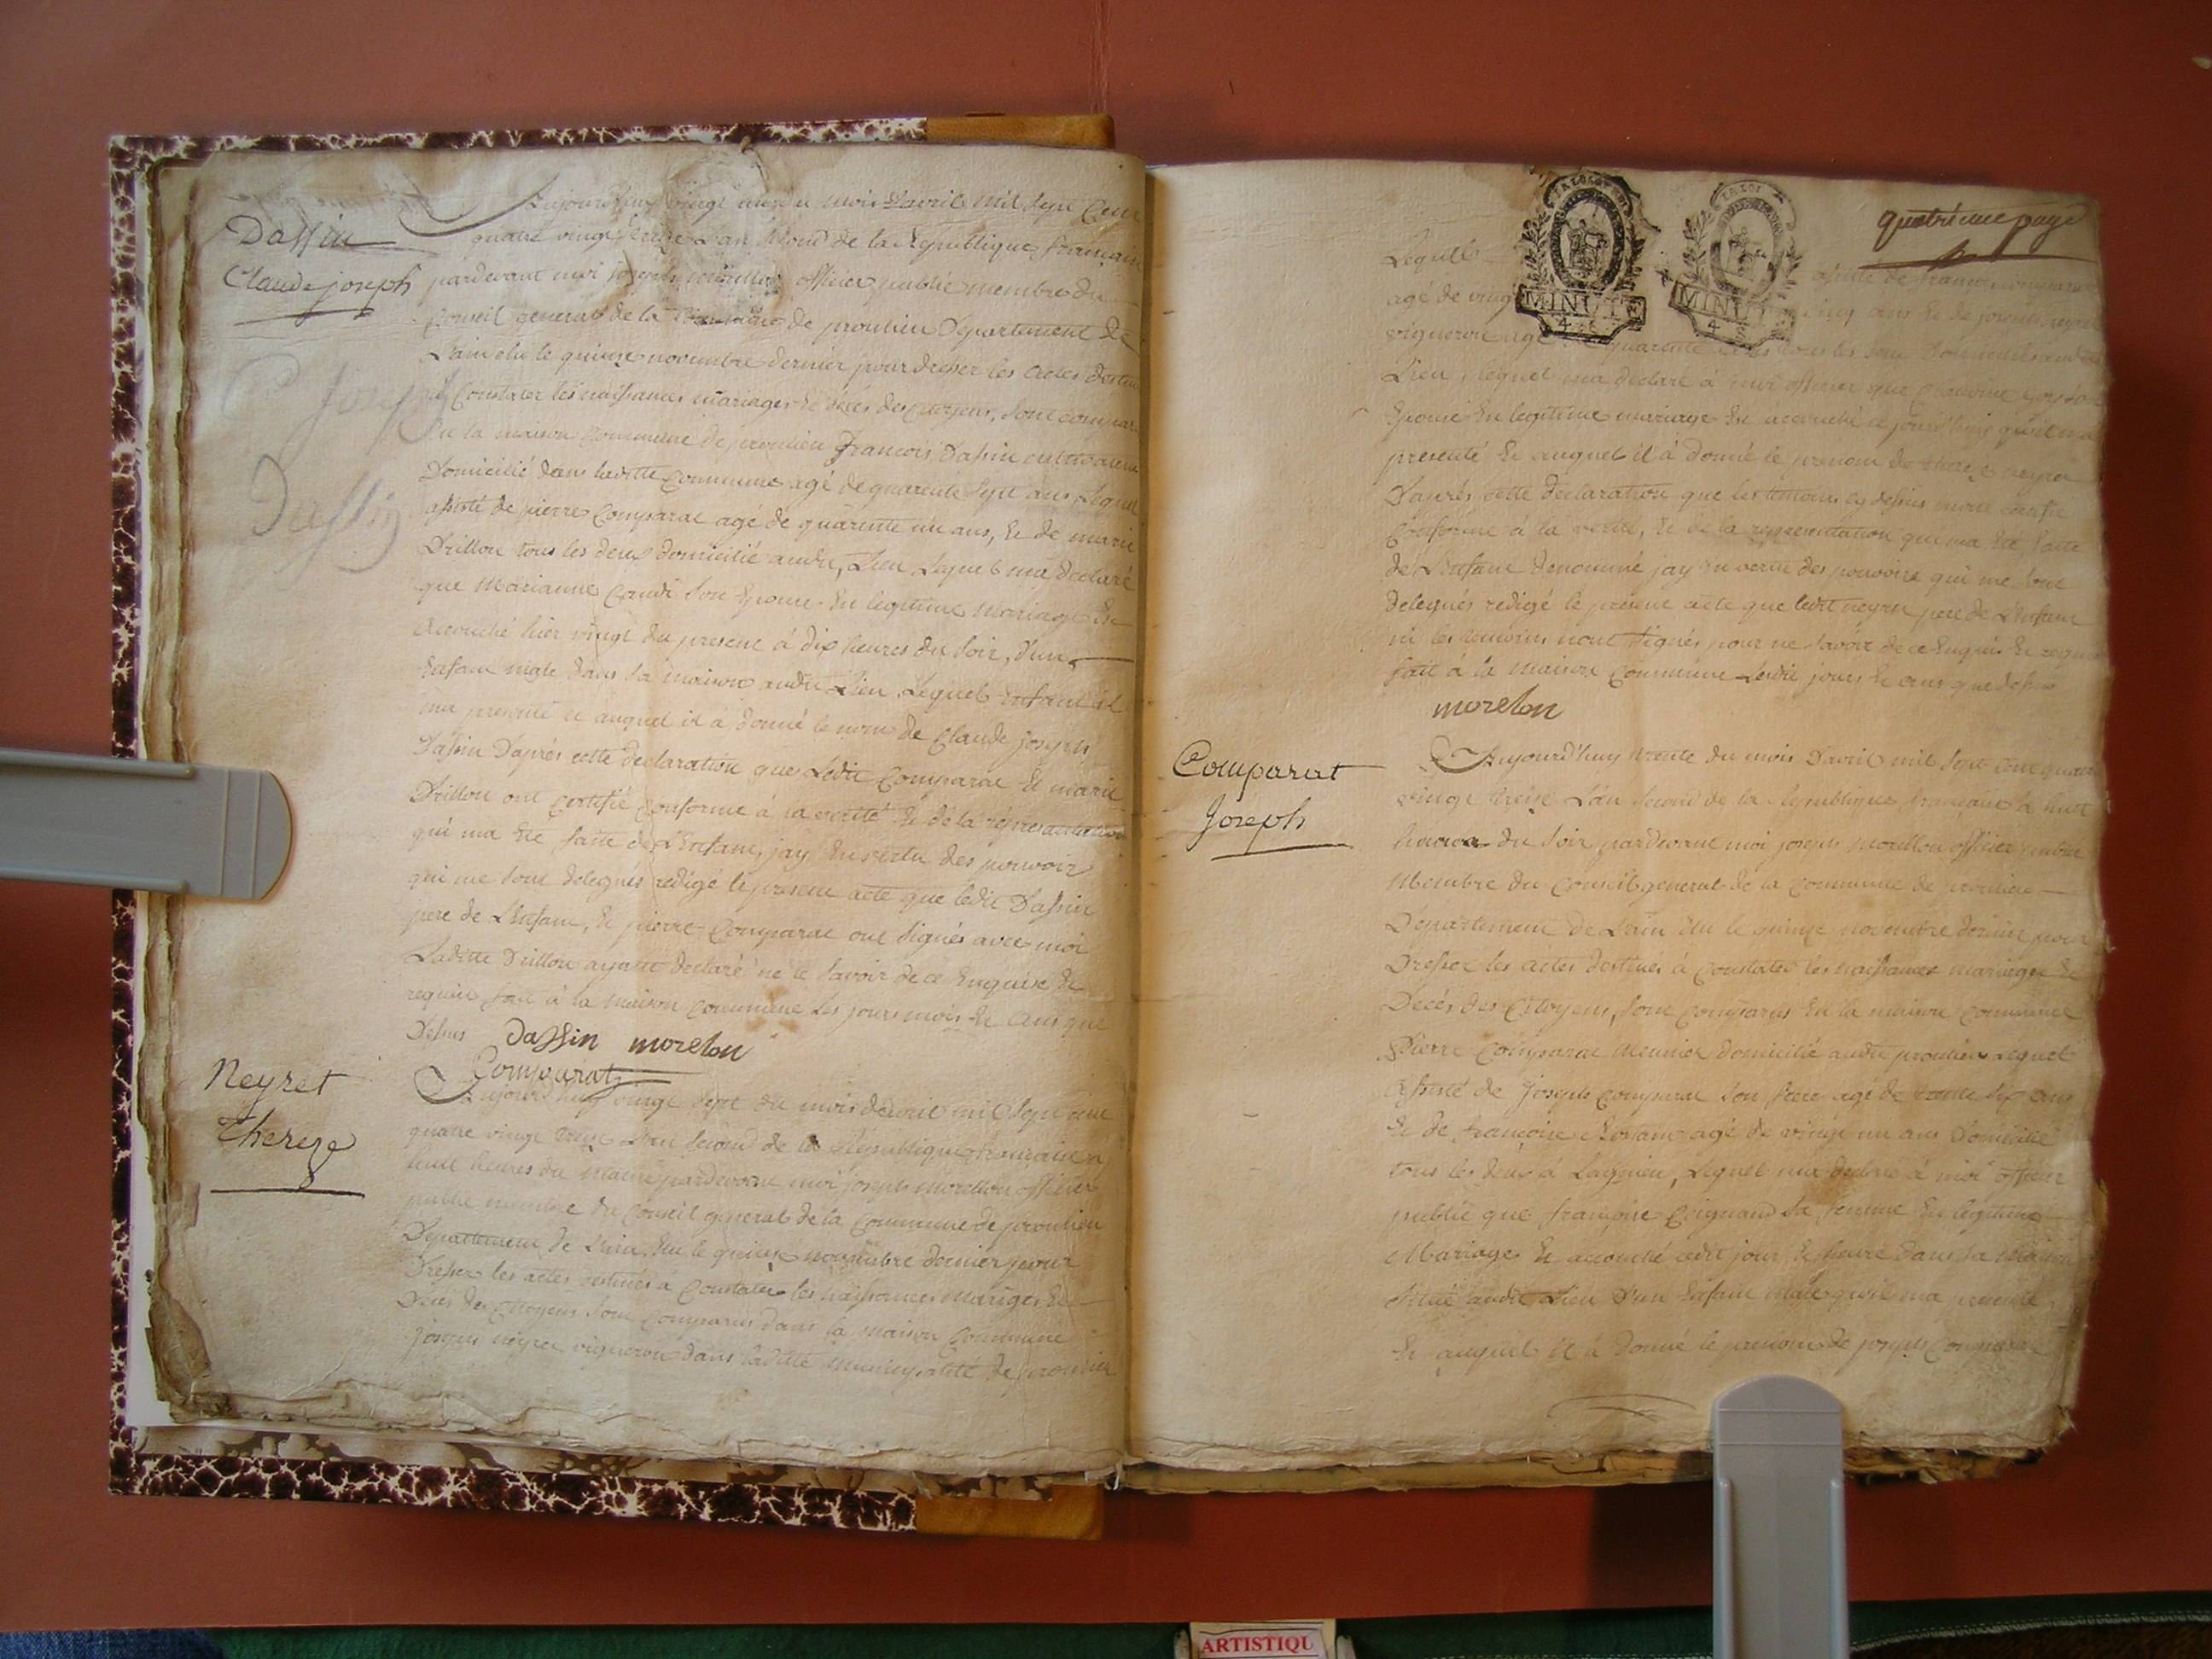 Dassin
Claude joseph
Aujourdhuy vingt un du mois d'avril mil sept Cent
quatre vingt treize L'an second de la République francaise
pardevant moi joseph morellon officier public membre du
Conseil general de la Commune de proulieu Departement de
L'ain elu le quinze novembre dernier pour dresser les actes destinés
à Constater les naissances mariages et décés des Citoyens, sont comparus
en la maison Commune de proulieu francois Dassin cultivateur
Domicilié dans laditte Commune agé de quarente sept ans Lequel
assisté de pierre Comparat agé de quarente un ans, Et de marie
Drillon tous les deux domicilié audit Lieu, Lequel ma declaré
que Marianne Son Epouse En legitime Mariage Est
accouché hier vingt du present à dix heures du soir, d'un
Enfant male dans sa maison audit Lieu, Lequel Enfant il
ma presenté et auquel il à donné le nom de Claude joseph
Dassin D'aprés cette declaration que Ledit Comparat Et marie
Drillon ont certifié conforme à la verité Et de la représentation
qui ma Eté faite de L'Enfant, jay En vertu des pouvoir
qui me sont delegués redigé le present acte que ledit Dassin
pere de L'Enfant, Et pierre Comparat ont signés avec moi
Laditte Drillon ayant declaré ne le savoir de ce Enquise Et
requise fait à la maison commune les jours mois Et ans que
Dessus Dassin morelon
Comparat
Joseph
Dassin
Neyret
Thereze
Aujourd'huy vingt sept du mois d'avril mil sept cent
quatre vingt treize L'an second de la République francaise à
huit heures du matin pardevant moi joseph morellon officier
public membre du Conseil general de la Commune de proulieu
Departement de L'ain, Elu le quinze novembre dernier pour
Dresser les actes destinés à Constater les naissances mariages Et
Décés des Citoyens sont comparus dans la maison Commune
joseph neyret vigneron dans laditte municipalité de proulieu
quatrieme page
MINUT
4. S
MINUT
4 S
LA LOI
Lequel assisté de francois comparat
agé de vingt cinq ans Et de joseph neyret
vigneron agé quarente ans tous les deux audit
Lieu, lequel ma declaré à moi officier que
Epouse En legitime mariage Est accouché ce jourd'huy qu'il ma
presenté Et auquel il à donné le prenom de thereze neyret
D'aprés cette declaration que les temoins cy dessus mont certifié
Conforme à la verité, Et de la representation qui ma Eté faite
de L'Enfant denommé jay En vertu des pouvoirs qui me sont
delegués redigé le present acte que ledit neyret pere de L'Enfant
ni les temoins nont signés pour ne savoir de ce Enquis Et requis
fait à la maison Commune Lesdit jours Et ans que dessus
morelon
Comparat
Joseph
Aujourd'huy trente du mois D'avril mil sept cent quatre
vingt treize L'an second de la République francaise à huit
heures du soir pardevant moi joseph morellon officier public
Membre du Conseil general de la Commune de proulieu
Departement de L'ain Elu le quinze novembre dernier pour
Dresser les actes destinés à constater les naissances mariages Et
Decés des Citoyens, sont comparus En la maison commune
Pierre Comparat Meunier domicilié audit proulieu Lequel
assisté de joseph comparat son frere agé de trente six ans
Et de francoise agé de vingt un ans Domicilié
tous les deux à Lagnieu, Lequel ma declaré à moi officier
public que francoise Coignand sa femme En legitime
Mariage Est accouché cedit jour Et heure dans sa Maison
situé audit Lieu D'un Enfant Male qu'il ma presenté
Et auquel il à donné le prenom de joseph Comparat
ARTISTIQU